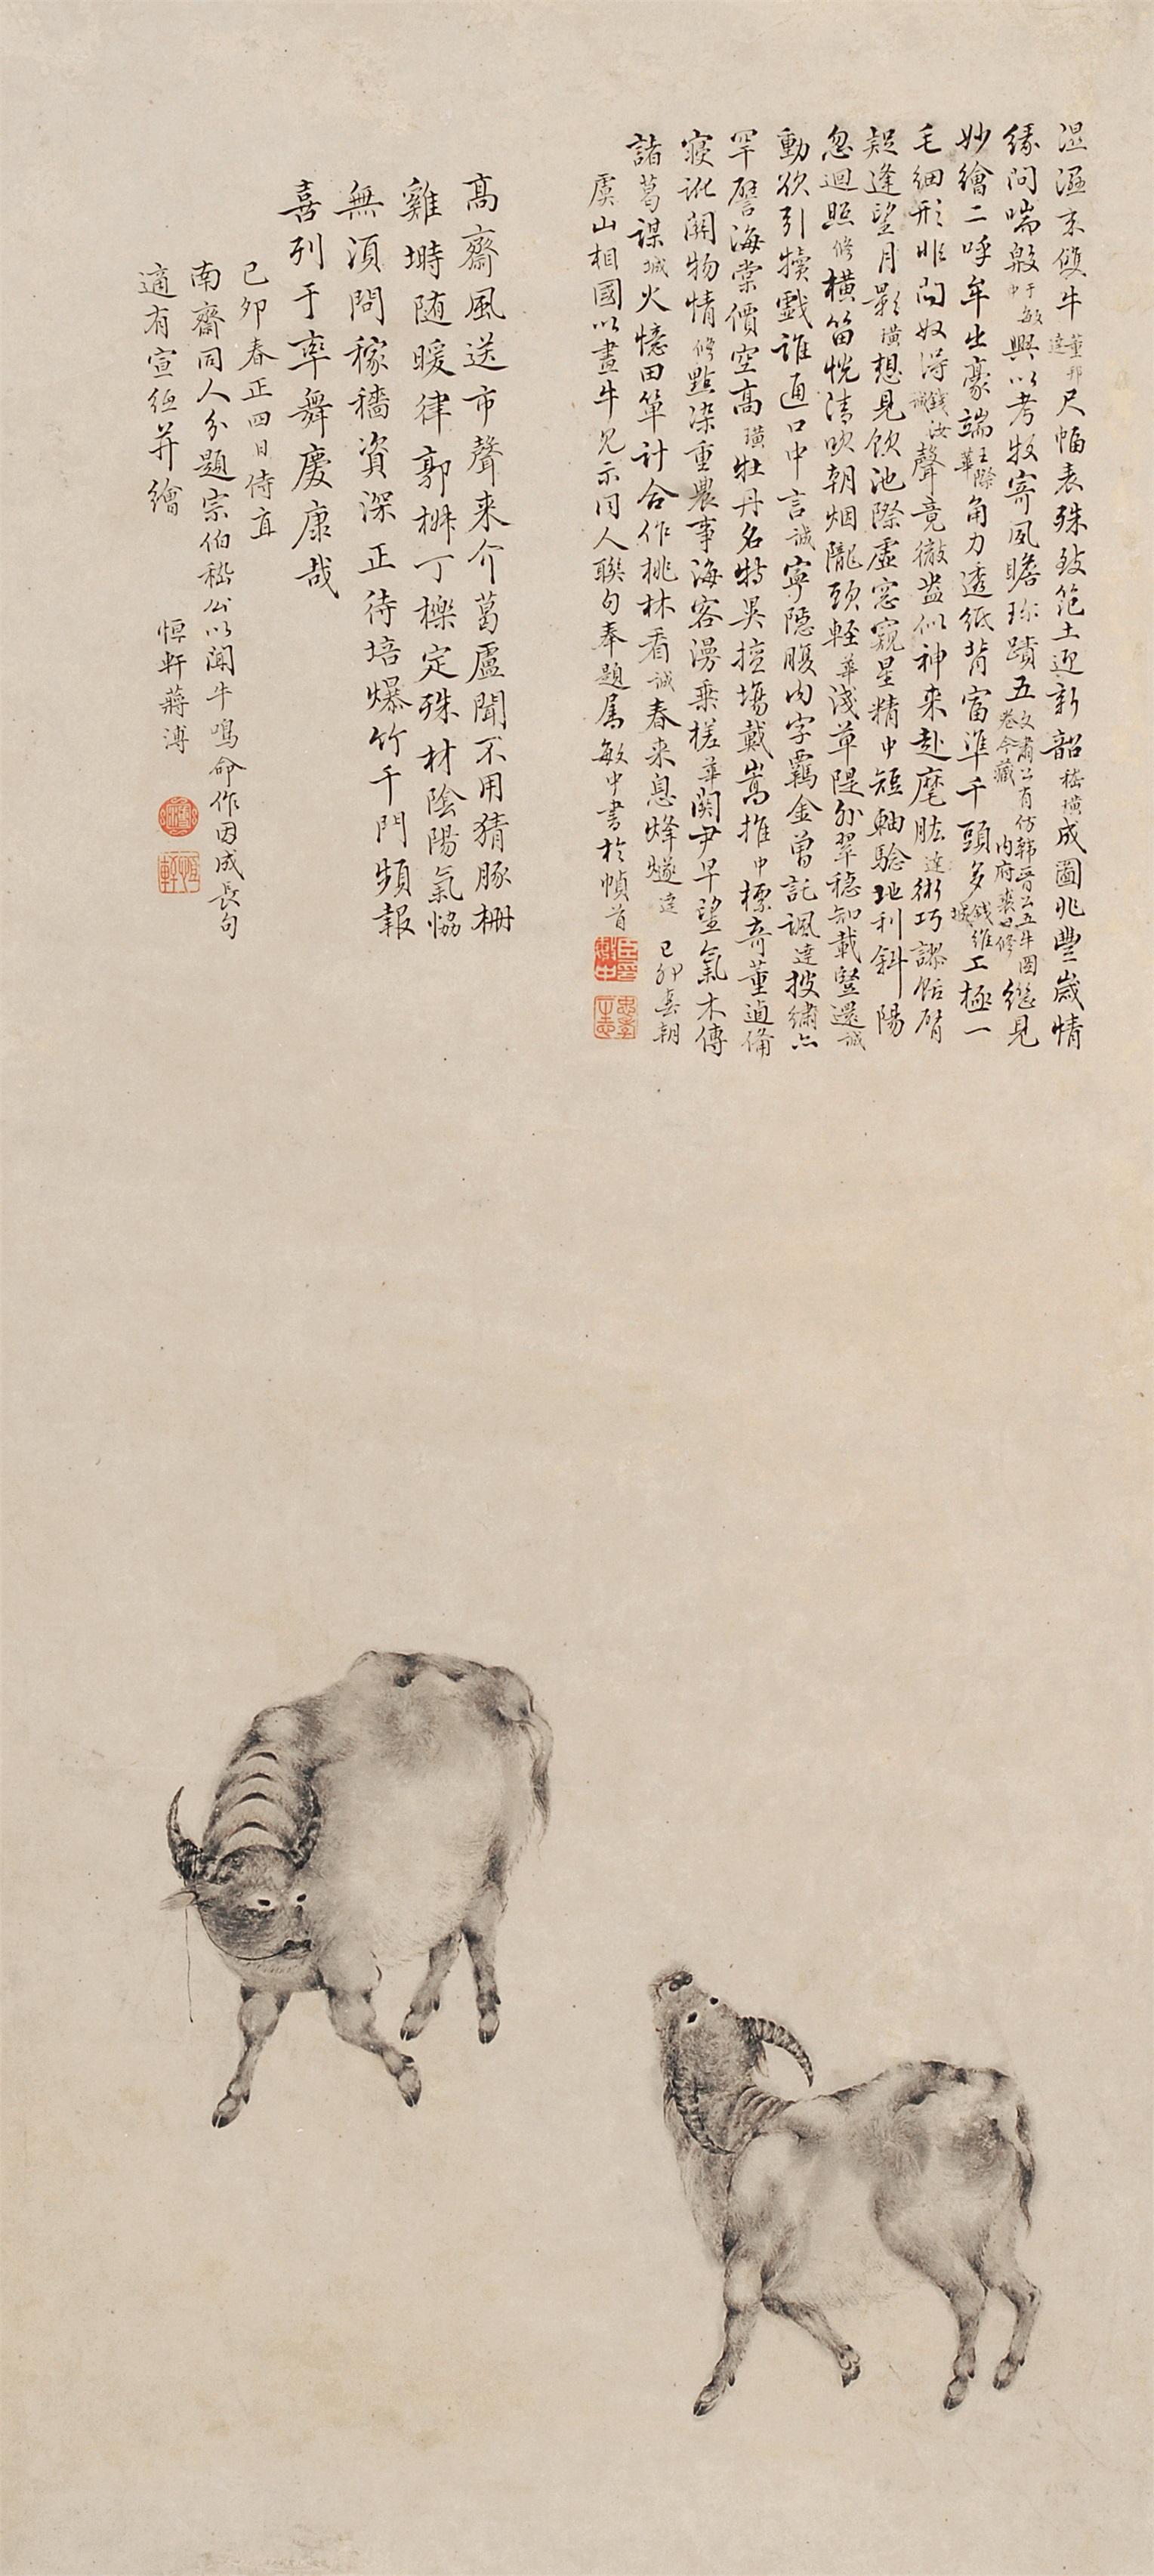 濕濕來雙牛董邦達尺幅表殊致範土迎新韶嵇璜成圖兆豐歲情
緣問喘般于敏中興以考牧寄夙瞻珎蹟五文肅公有仿韓晉公五牛圖卷今藏內府裘曰修繼見
妙繪二呼牟出豪端王際華角力透紙背富準千頭多錢維城工極一
毛細形非問奴得錢汝誠聲竟徹盎似神來赴麾肱達術巧謬飯臂
疑逢望月影璜想見飲池際虛窓窺星精中短軸驗地利斜陽
忽迴照修橫笛恍清吹朝烟隴頭輕華淺草隄外翠穩知載豎還誠
動欲引犢戲誰通口中言誠寧隱腹內字羈金曾託諷達披繡亦
罕譬海棠價空高璜牡丹名特異擅塲戴嵩推中標奇董逌備
寢訛關物情修點染重農事海客漫乘槎華關尹早望氣木傳
諸葛謀城火憶田單計合作桃林看誠春來息烽燧達 己卯春朝
虞山相國以畫牛見示同人聯句奉題屬敏中書於幀首
高齋風送市聲來介葛盧聞不用猜豚柵
雞塒随暖律郭椒丁櫟定殊材陰陽氣恊
無須問稼穡資深正待培爆竹千門頻報
喜列于率舞慶康哉
己卯春正四日侍直
南齋同人分題宗伯嵇公以聞牛鳴命作因成長句
適有宣紙并繪
恒軒蔣溥